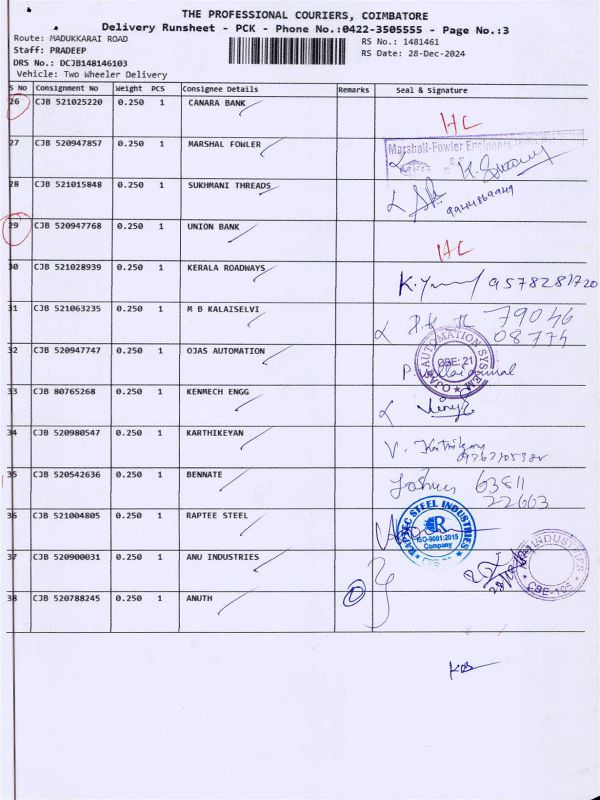 THE PROFESSIONAL COURIERS, COIMBATORE
Delivery Runsheet - PCK - Phone No.:0422-3505555 - Page No.:3
Route: MADUKKARAI ROAD
RS No.: 1481461
Staff: PRADEEP
RS Date: 28-Dec-2024
DRS No.: DCJB148146103
Vehicle: Two Wheeler Delivery
S No Consignment No Weight PCS Consignee Details Remarks Seal & Signature
26 CJB 521025220 0.250 1 CANARA BANK HC
27 CJB 520947857 0.250 1 MARSHAL FOWLER
Marshall-Fowler
28 CJB 521015848 0.250 1 SUKHMANI THREADS
9944869949
29 CJB 520947768 0.250 1 UNION BANK HC
30 CJB 521028939 0.250 1 KERALA ROADWAYS 9578281720
31 CJB 521063235 0.250 1 M B KALAISELVI 79046
08774
32 CJB 520947747 0.250 1 OJAS AUTOMATION
OJAS AUTOMATION SYSTEM
CBE: 21
33 CJB 80765268 0.250 1 KENMECH ENGG
34 CJB 520980547 0.250 1 KARTHIKEYAN
35 CJB 520542636 0.250 1 BENNATE 63811
22663
36 CJB 521004805 0.250 1 RAPTEE STEEL
RAPTEC STEEL INDUSTRIES
ISO-9001:2015
Company
37 CJB 520900031 0.250 1 ANU INDUSTRIES
INDUSTRIES
CBE-105
38 CJB 520788245 0.250 1 ANUTH